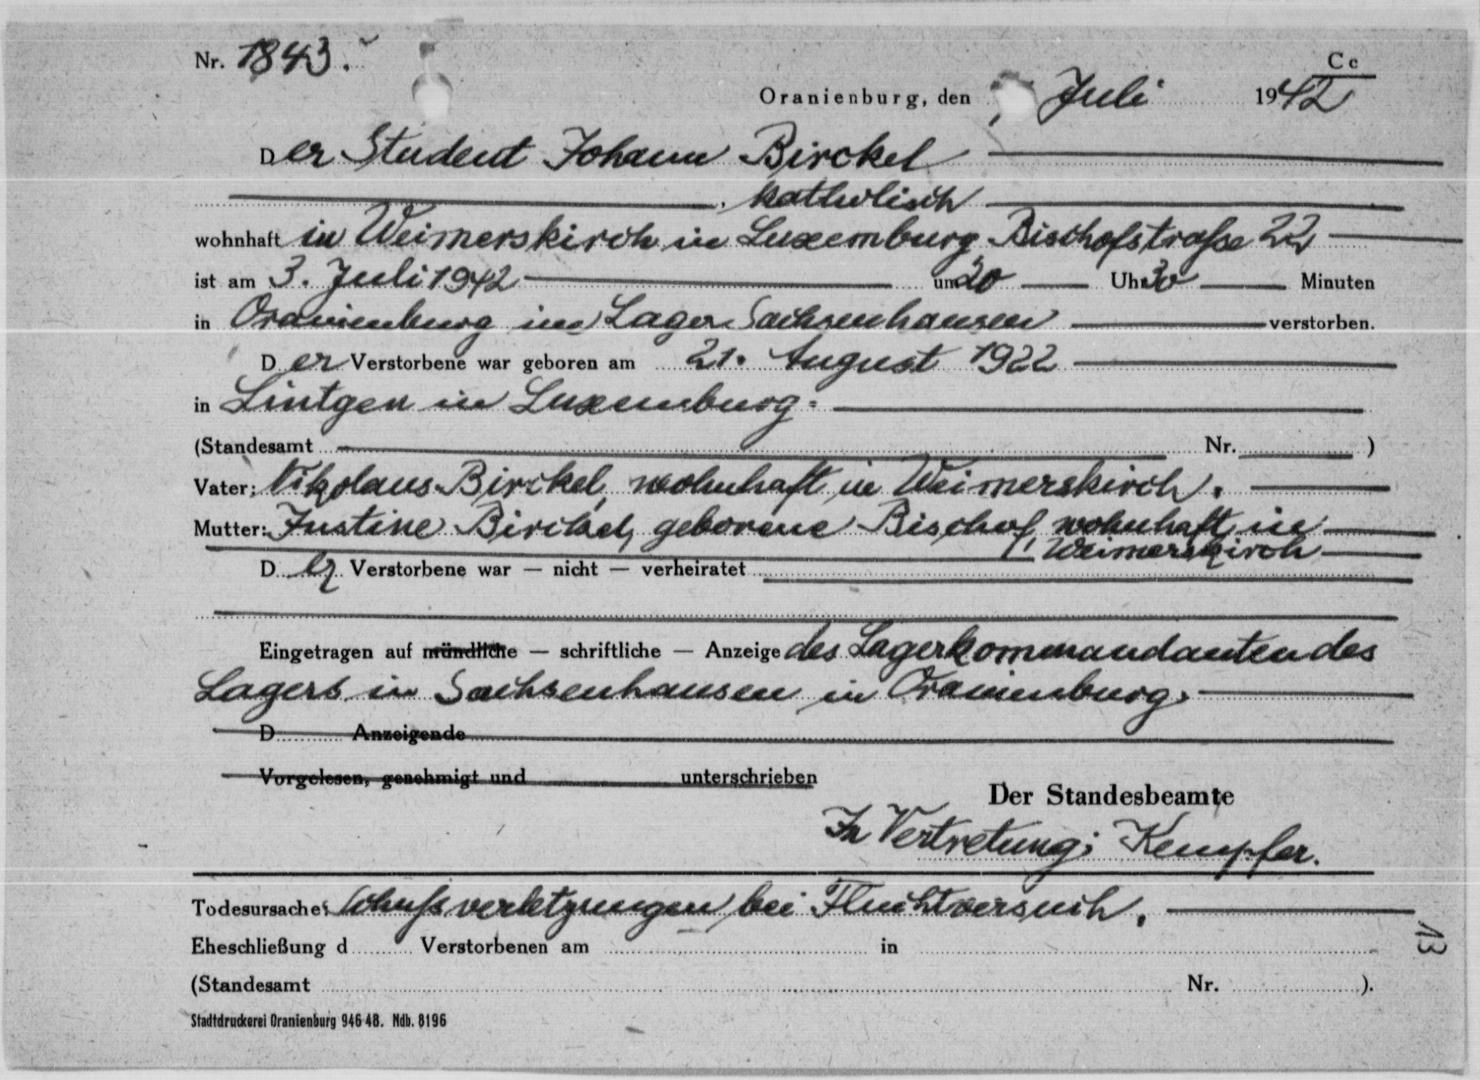 Nr. 1843.
Cc
Oranienburg, den Juli 1942
Der Student Johann Birckel
, katholisch
wohnhaft in Weimerskirch in Luxemburg Bischofstraße 22
ist am 3. Juli 1942 um 20 Uhr 30 Minuten
in Oranienburg im Lager Sachsenhausen verstorben.
Der Verstorbene war geboren am 21. August 1922
in Lintgen in Luxemburg.
(Standesamt Nr. )
Vater: Nikolaus Birckel, wohnhaft in Weimerskirch.
Mutter: Justine Birckel, geborene Bischof, wohnhaft in
Weimerskirch
Der Verstorbene war — nicht — verheiratet
Eingetragen auf mündliche — schriftliche — Anzeige des Lagerkommandanten des
Lagers in Sachsenhausen in Oranienburg.
D Anzeigende
Vorgelesen, genehmigt und unterschrieben
Der Standesbeamte
In Vertretung: Kempfer.
Todesursache: Schußverletzungen bei Fluchtversuch.
13
Eheschließung d Verstorbenen am in
(Standesamt Nr. ).
Stadtdruckerei Oranienburg 946 48. Ndb. 8196